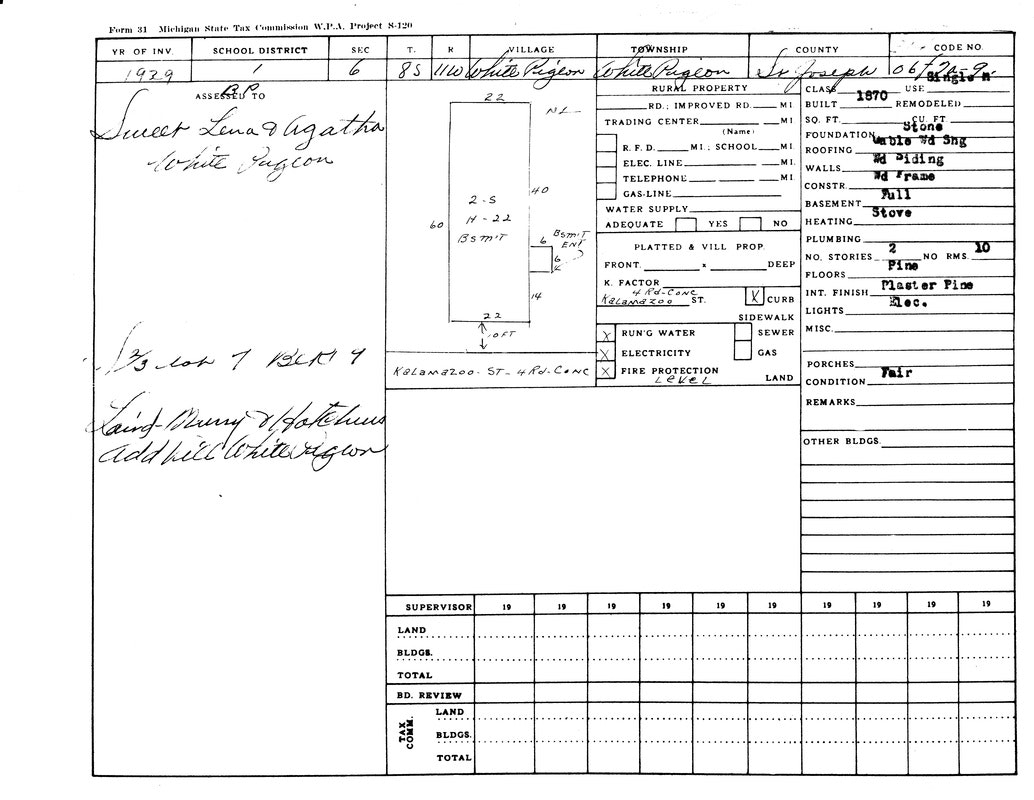 Form 31 Michigan State Tax Commission W.P.A. Project S-120
YR OF INV. SCHOOL DISTRICT SEC T. R VILLAGE TOWNSHIP COUNTY CODE NO.
1939 1 6 8S 11W White Pigeon White Pigeon St. Joseph
ASSESSED TO
Sweet Lena & Agatha
White Pigeon
S 2/3 Lot 7 BLK 9
Laird Murry & Hotchins
Add Vill White Pigeon
22
N L
40
60
2-S
H-22
BSM'T
BSM'T
ENT
6
6
14
22
10 FT
KALAMAZOO - ST - 4 Rd-CONC
RURAL PROPERTY
RD.; IMPROVED RD. MI.
TRADING CENTER MI
(Name)
R. F. D. MI.; SCHOOL MI.
ELEC. LINE MI.
TELEPHONE MI.
GAS-LINE
WATER SUPPLY
ADEQUATE YES NO
PLATTED & VILL PROP.
FRONT. x DEEP
K. FACTOR
4 Rd-CONC
KALAMAZOO ST. X CURB
SIDEWALK
X RUN'G WATER SEWER
X ELECTRICITY GAS
X FIRE PROTECTION
LEVEL LAND
CLASS USE Single
BUILT 1870 REMODELED
SQ. FT. CU. FT.
FOUNDATION Stone
ROOFING Gable Wd Shg
WALLS Wd Siding
CONSTR. Wd Frame
BASEMENT Full
HEATING Stove
PLUMBING
NO. STORIES 2 NO RMS. 10
FLOORS Pine
INT. FINISH Plaster Pine
LIGHTS Elec.
MISC.
PORCHES
CONDITION Fair
REMARKS
OTHER BLDGS.
SUPERVISOR 19 19 19 19 19 19 19 19 19 19
LAND
BLDGS.
TOTAL
BD. REVIEW
TAX COMM.
LAND
BLDGS.
TOTAL